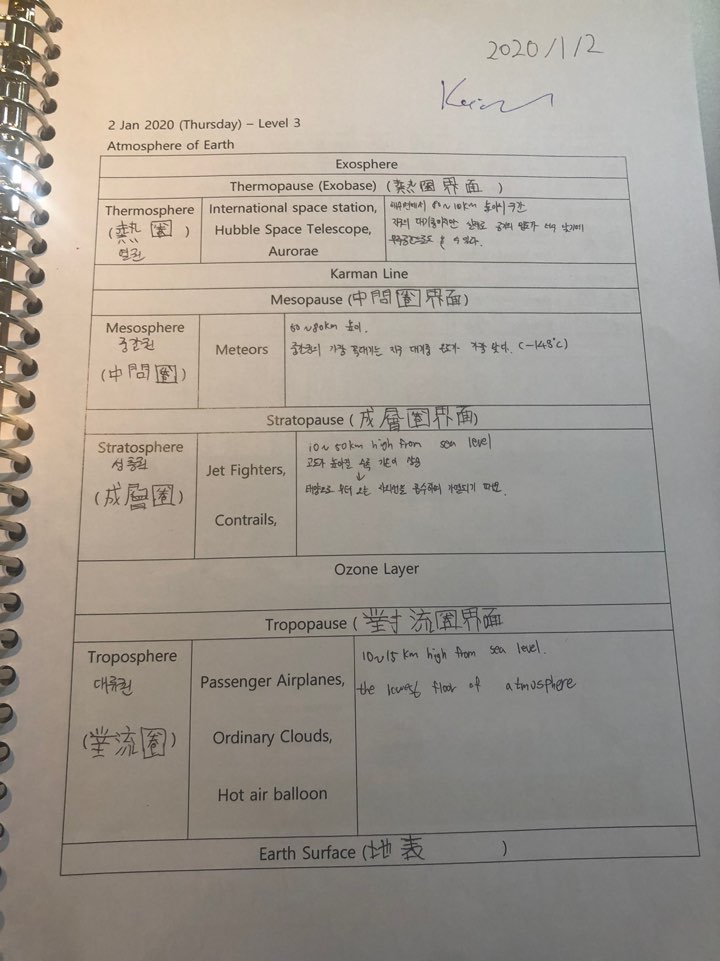 2020/1/2
2 Jan 2020 (Thursday) – Level 3
Atmosphere of Earth
Exosphere
Thermopause (Exobase) (熱圈界面)
Thermosphere
(熱圈)
열권
International space station,
Hubble Space Telescope,
Aurorae
Karman Line
Mesopause (中間圈界面)
Mesosphere
중간권
(中間圈)
Meteors
50~80km 높이.
중간권의 가장 꼭대기는 지구 대기중 온도가 가장 낮다. (-143°C)
Stratopause (成層圈界面)
Stratosphere
성층권
(成層圈)
Jet Fighters,
Contrails,
10~50km high from sea level
고도가 높아질 수록 기온이 상승
↓
태양으로 부터 오는 자외선을 흡수하여 가열되기 때문.
Ozone Layer
Tropopause (對流圈界面
Troposphere
대류권
(對流圈)
Passenger Airplanes,
Ordinary Clouds,
Hot air balloon
10~15 km high from sea level.
the lowest floor of atmosphere
Earth Surface (地表)